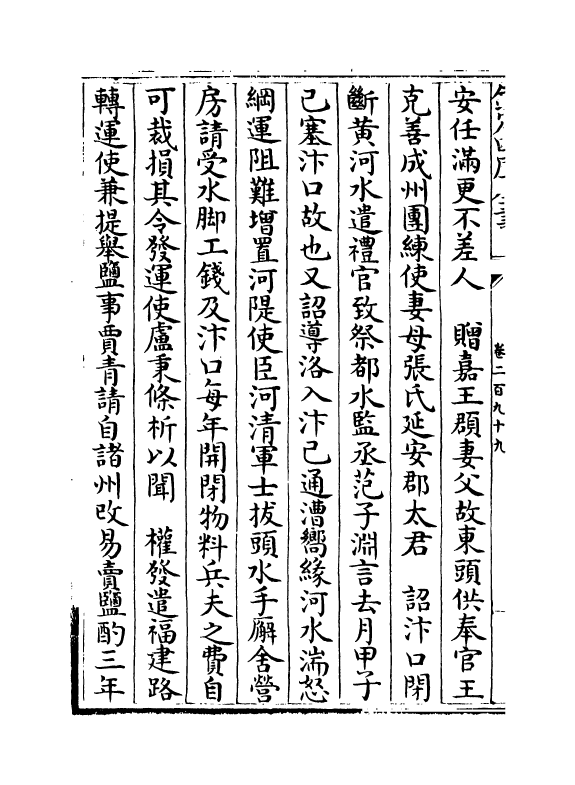 卷二百九十九
安任滿更不差人　贈嘉王頵妻父故東頭供奉官王
克善成州團練使妻母張氏延安郡太君　詔汴口閉
斷黃河水遣禮官致祭都水監丞范子淵言去月甲子
己塞汴口故也又詔導洛入汴已通漕嚮緣河水湍怒
綱運阻難增置河隄使臣河清軍士拔頭水手廨舍營
房請受水脚工錢及汴口每年開閉物料兵夫之費自
可裁損其令發運使盧秉條析以聞　權發遣福建路
轉運使兼提舉鹽事賈青請自諸州改易賣鹽酌三年